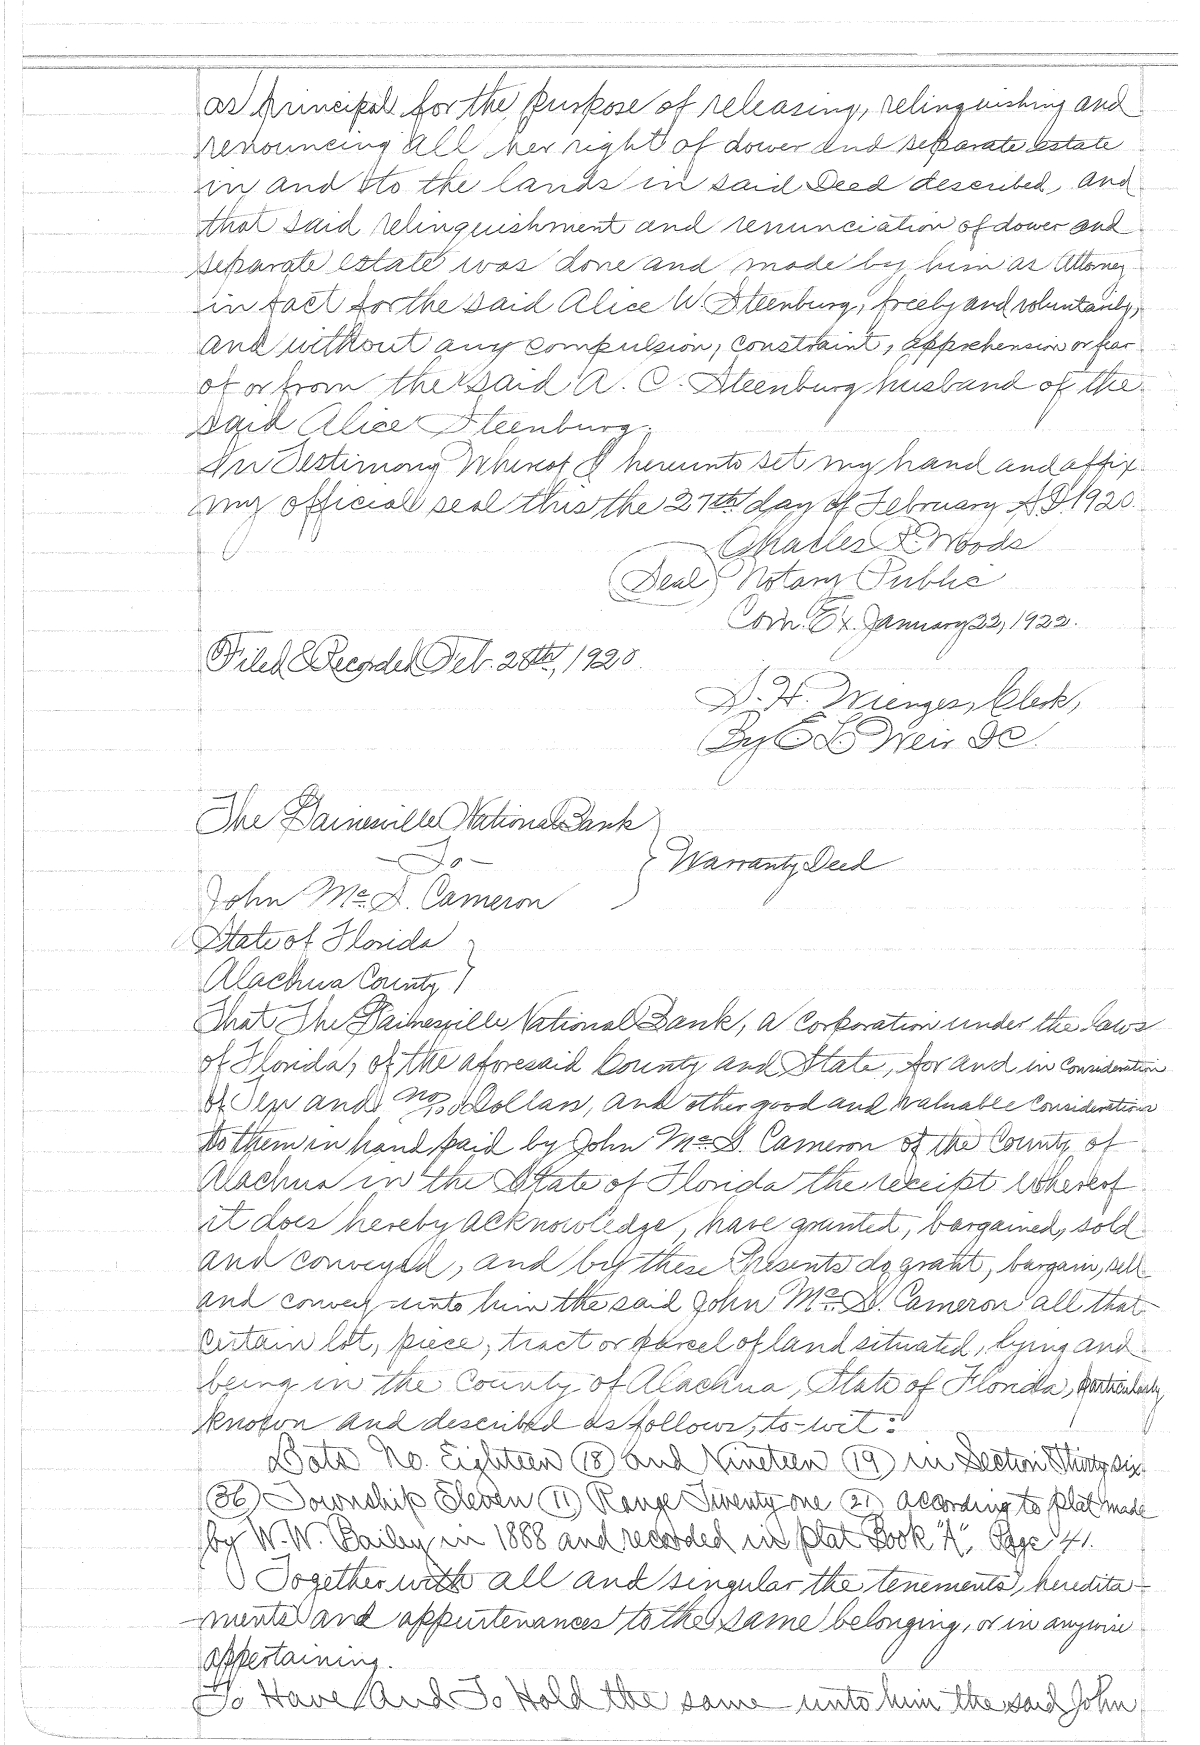 as principal for the purpose of releasing, relinquishing and
renouncing all her right of dower and separate estate
in and to the lands in said Deed described, and
that said relinquishment and renunciation of dower and
separate estate was done and made by him as Attorney
in fact for the said Alice W. Steenburg, freely and voluntarily,
and without any compulsion, constraint, apprehension or fear
of or from the said A. C. Steenburg husband of the
said Alice Steenburg.
In Testimony Whereof I hereunto set my hand and affix
my official seal this the 27th day of February A.D. 1920.
Charles R. Woods
(Seal) Notary Public
Com. Ex. January 22, 1922.
Filed & Recorded Feb. 28th, 1920.
S. H. Wienges, Clerk,
By E L Weir DC.
The Gainesville National Bank
—To—
Warranty Deed
John Mc. S. Cameron
State of Florida
Alachua County
That The Gainesville National Bank, a corporation under the laws
of Florida, of the aforesaid County and State, for and in consideration
of Ten and no/100 Dollars, and other good and valuable considerations
to them in hand paid by John Mc. S. Cameron of the County of
Alachua in the State of Florida the receipt whereof
it does hereby acknowledge, have granted, bargained, sold
and conveyed, and by these Presents do grant, bargain, sell
and convey unto him the said John Mc. S. Cameron all that
certain lot, piece, tract or parcel of land situated, lying and
being in the County of Alachua, State of Florida, particularly
known and described as follows, to-wit:
Lots No. Eighteen (18) and Nineteen (19) in Section Thirty six
(36) Township Eleven (11) Range Twenty one (21) according to plat made
by W. W. Bailey in 1888 and recorded in plat Book "A", Page 41.
Together with all and singular the tenements, heredita-
ments and appurtenances to the same belonging, or in anywise
appertaining.
To Have And To Hold the same unto him the said John